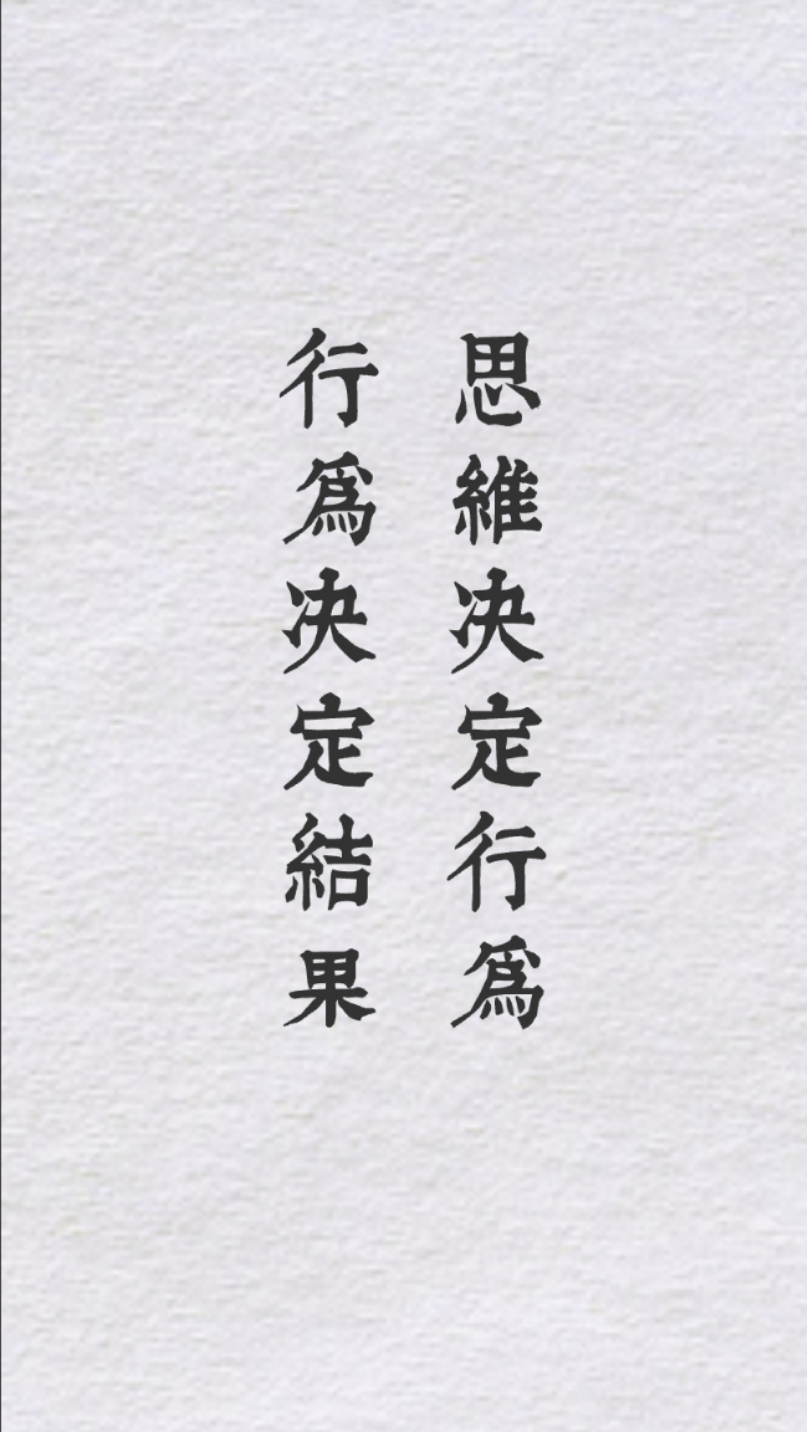 思維决定行爲
行爲决定結果